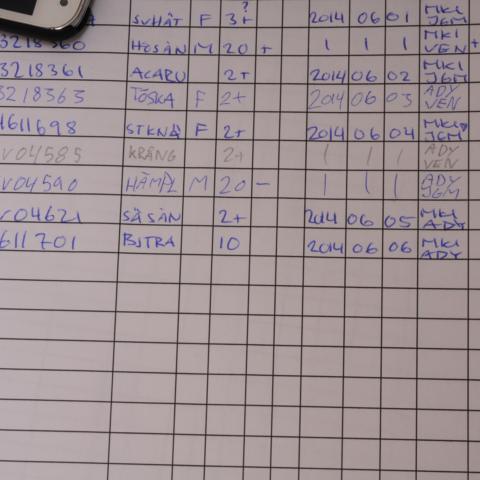 SVHÄT F 3+? 2014 06 01 MKI JGM
3218360 HOSÄN M 20 + 1 1 1 MKI VEN +
3218361 ACARU 2+ 2014 06 02 MKI JGM
3218363 TOSKA F 2+ 2014 06 03 ADY VEN
611698 STKNÄ F 2+ 2014 06 04 MKI JGM
V04585 KRÄNG 2+ 1 1 1 ADY VEN
V04590 M 20 - 1 1 1 ADY JGM
04621 SÄSÄN 2+ 2014 06 05 MKI ADY
611701 BJTRA 10 2014 06 06 MKI ADY